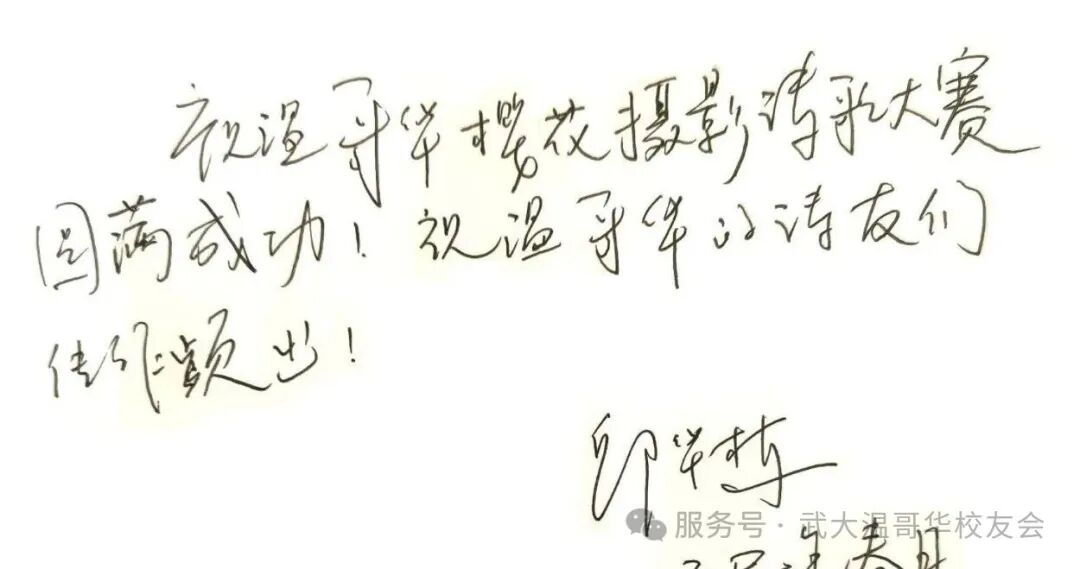 祝温哥华樱花摄影诗歌大赛
圆满成功！祝温哥华的诗友们
佳作频出！
邱华栋
服务号·武大温哥华校友会
春月